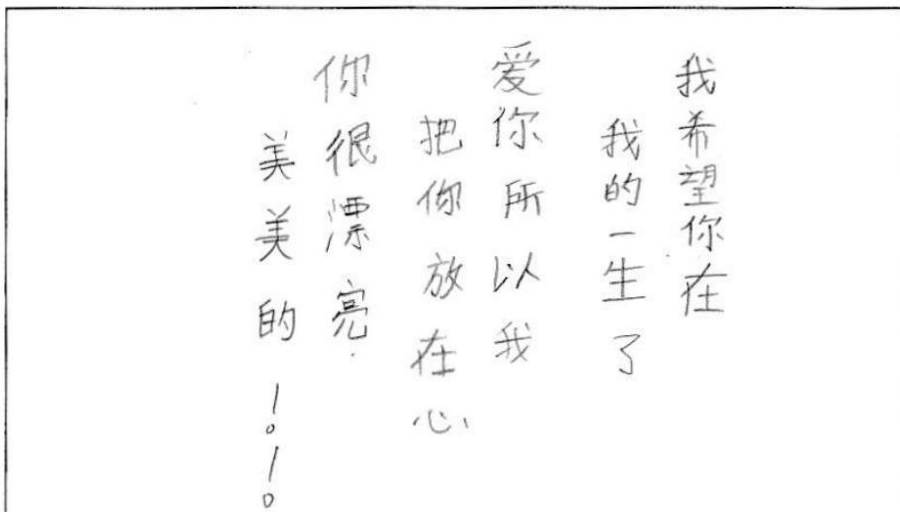 我希望你在
我的一生了
爱你所以我
把你放在心
你很漂亮.
美美的!!